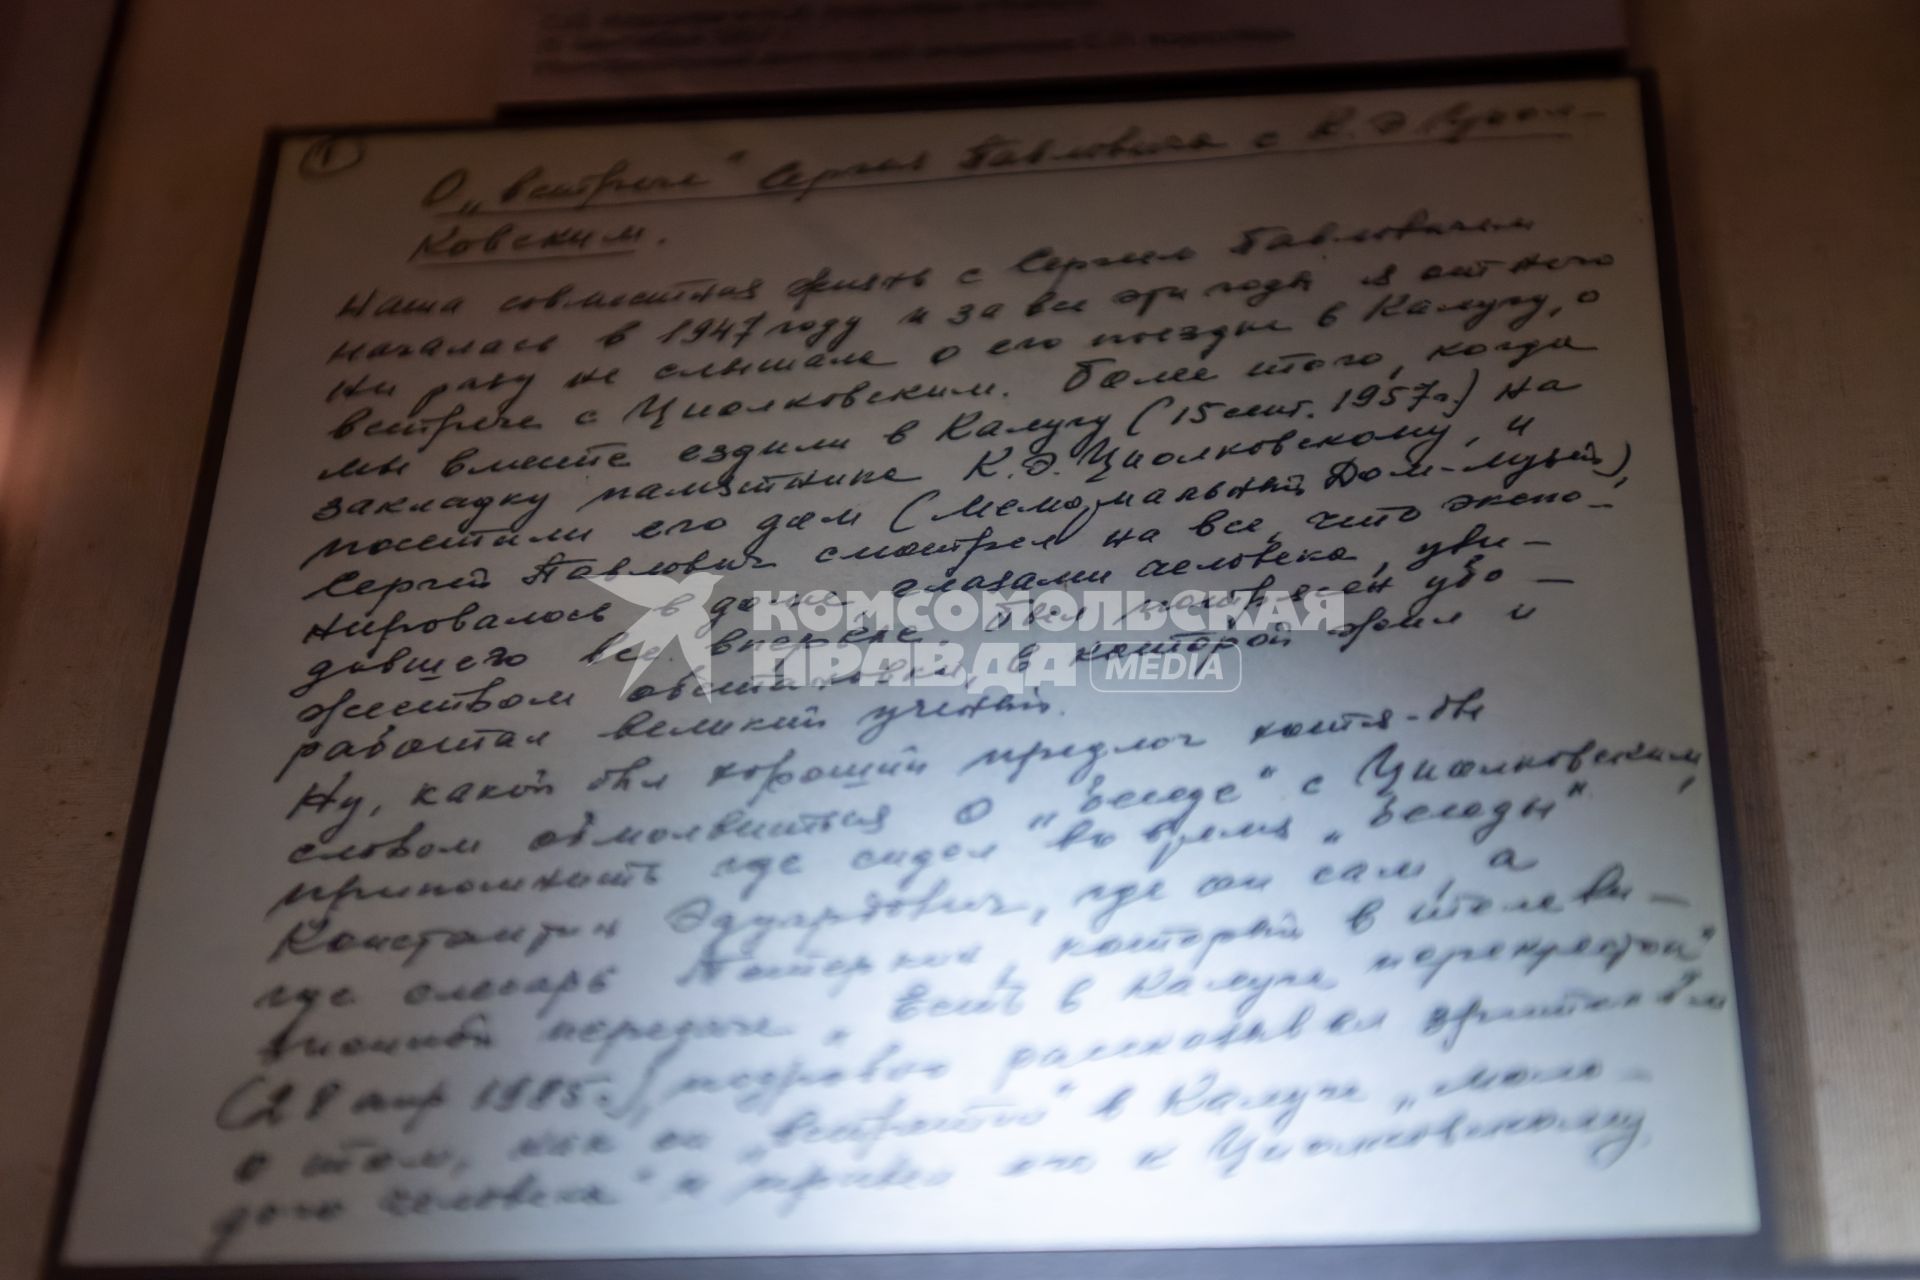 1
О „встрече" Сергея Павловича с К.Э. Циол-
ковским.
Наша совместная жизнь с Сергеем Павловичем
началась в 1947 году и за все эти годы я от него
ни разу не слышала о его поездке в Калугу, о
встрече с Циолковским. Более того, когда
мы вместе ездили в Калугу (15 сент. 1957 г.) на
закладку памятника К.Э. Циолковскому, и
посетили его дом (Мемориальный Дом-музей),
Сергей Павлович смотрел на все, что экспо-
нировалось в доме, глазами человека, уви-
девшего все впервые. Был потрясен убо-
жеством обстановки, в которой жил и
работал великий ученый.
Ну, какой был хороший предлог хотя-бы
словом обмолвиться о „беседе" с Циолковским,
припомнить где сидел во время „беседы"
Константин Эдуардович, где он сам, а
где слесарь который в телеви-
зионной передаче „Есть в Калуге перекресток"
(28 апр 1985 г.), подробно рассказывал зрителям
о том, как он „встретил" в Калуге „моло-
дого человека" и привел его к Циолковскому.
КОМСОМОЛЬСКАЯ
ПРАВДА MEDIA